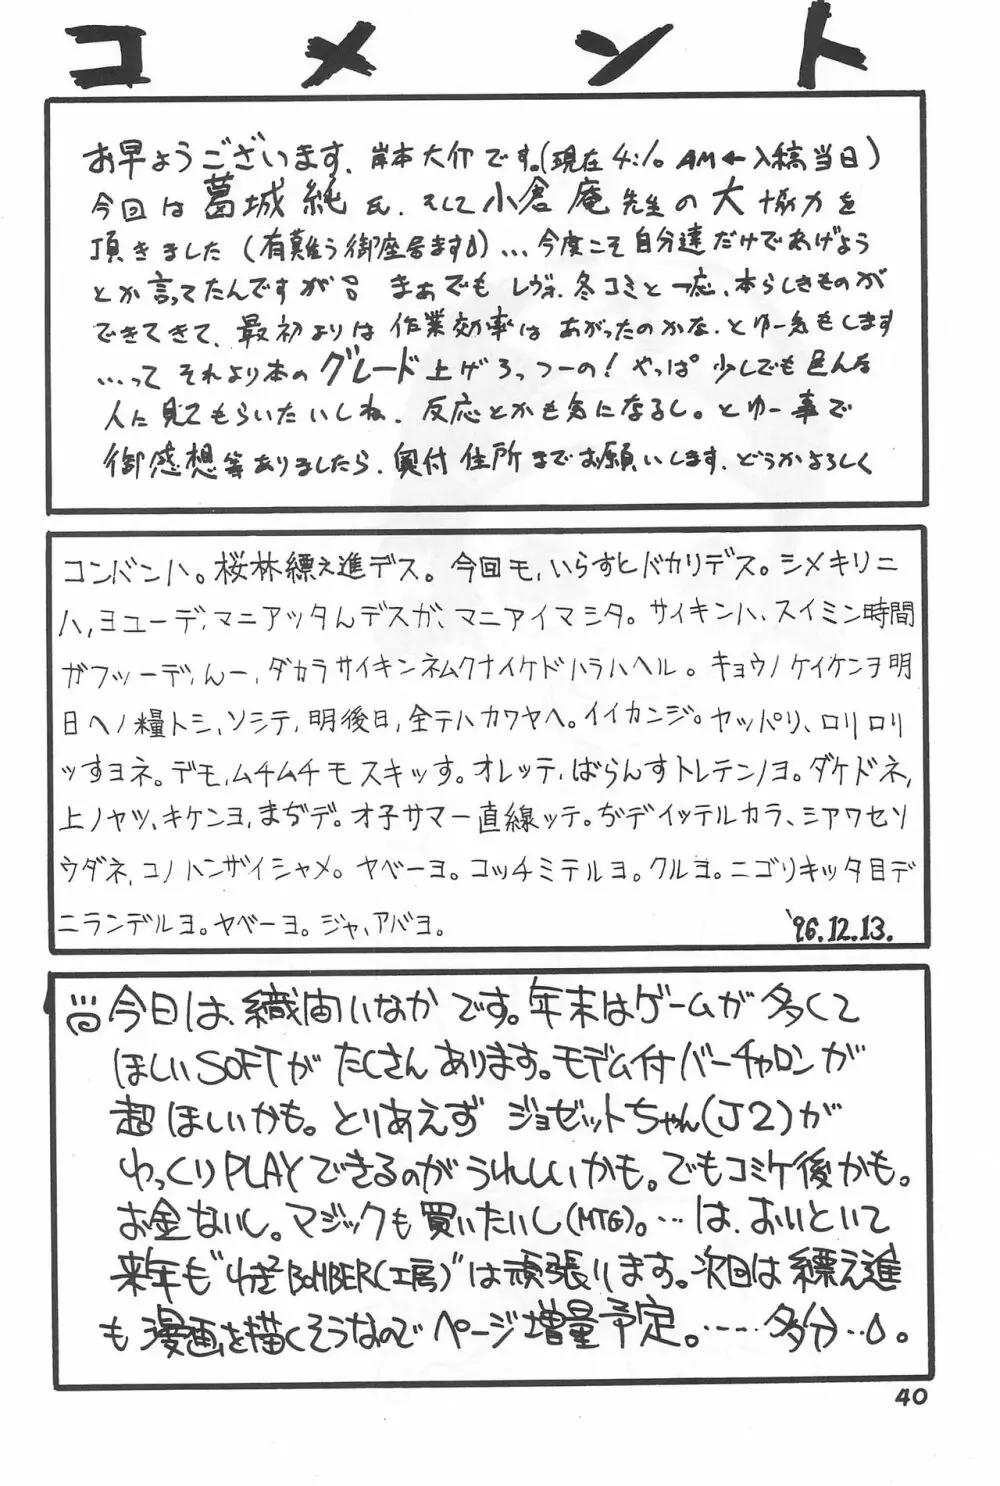 コメント
お早ようございます、岸本大介です。(現在4:10 AM←入稿当日)
今回は葛城純氏、そして小倉庵先生の大協力を
頂きました(有難う御座居ます)…今度こそ自分達だけであげよう
とか言ってたんですが まぁでもレヴォ、冬コミと一応、本らしきものが
できてきて、最初よりは作業効率はあがったのかな、とゆー気もします
…って それより本のグレード上げろっつーの!やっぱ少しでも色んな
人に見てもらいたいしね、反応とかも気になるし。とゆー事で
御感想等ありましたら、奥付住所までお願いします、どうかよろしく
コンバンハ。桜林縹え進デス。今回モ,いらすとバカリデス。シメキリニ
ハ,ヨユーデ,マニアッタんデスガ、マニアイマシタ。サイキンハ、スイミン時間
ガフツーデ,んー,ダカラサイキンネムクナイケドハラハヘル。キョウノケイケンヲ明
日ヘノ糧トシ,ソシテ,明後日,全テハカワヤヘ。イイカンジ。ヤッパリ、ロリロリ
ッすヨネ。デモ,ムチムチモスキッす。オレッテ,ばらんすトレテンノヨ。ダケドネ,
上ノヤツ、キケンヨ,まぢデ。オ子サマ一直線ッテ。ぢデイッテルカラ、シアワセソ
ウダネ,コノハンザイシャメ。ヤベーヨ。コッチミテルヨ。クルヨ。ニゴリキッタ目デ
ニランデルヨ。ヤベーヨ。ジャ,アバヨ。 '96.12.13.
今日は、織宙いなかです。年末はゲームが多くて
ほしいSOFTがたくさんあります。モデム付バーチャロンが
超ほしいかも。とりあえずジョゼットちゃん(J2)が
ゆっくりPLAYできるのがうれしいかも。でもコミケ後かも。
お金ないし。マジックも買いたいし(MTG)。…は、おいといて
来年も"わざBOMBER(工房)"は頑張ります。次回は縹え進
も漫画を描くそうなのでページ増量予定。……多分…。
40